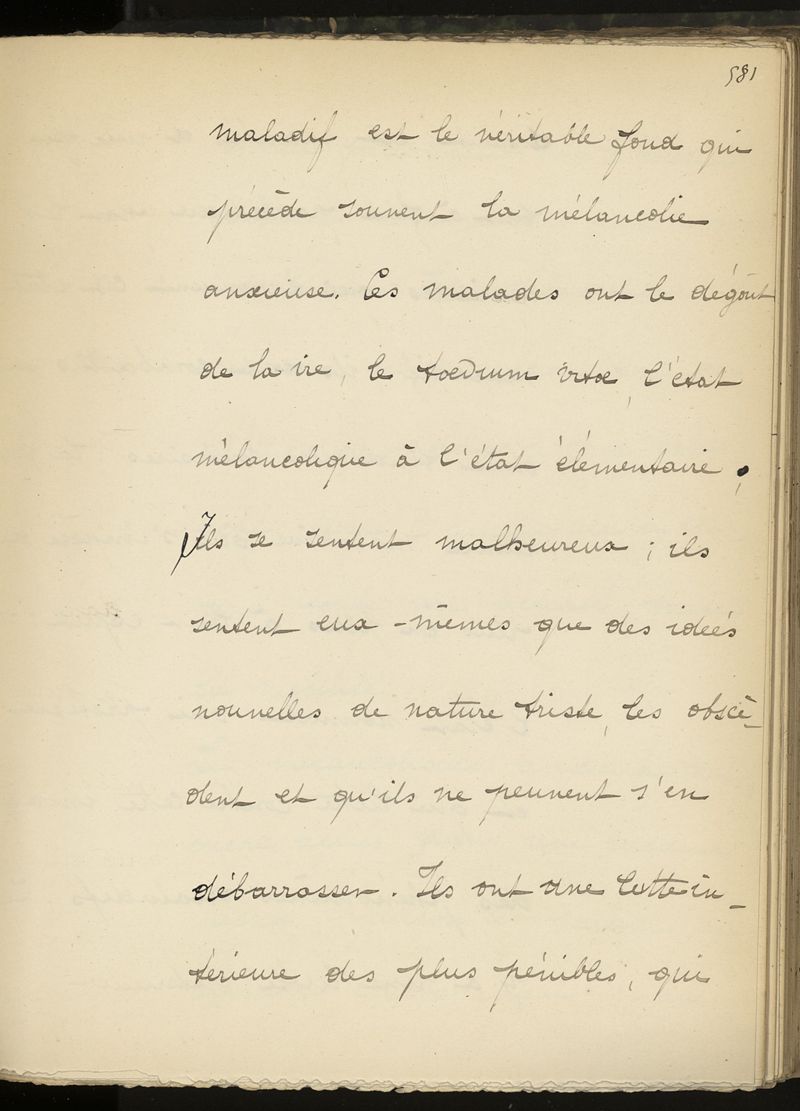 581
maladif est le véritable fond qui
précède souvent la mélancolie
anxieuse. Ces malades ont le dégoût
de la vie, le tœdium vitœ, l'état
mélancolique à l'état élémentaire.
Ils se sentent malheureux ; ils
sentent eux-mêmes que des idées
nouvelles de nature triste, les obsè-
dent et qu'ils ne peuvent s'en
débarrasser. Ils ont une lutte in-
térieure des plus pénibles, qui